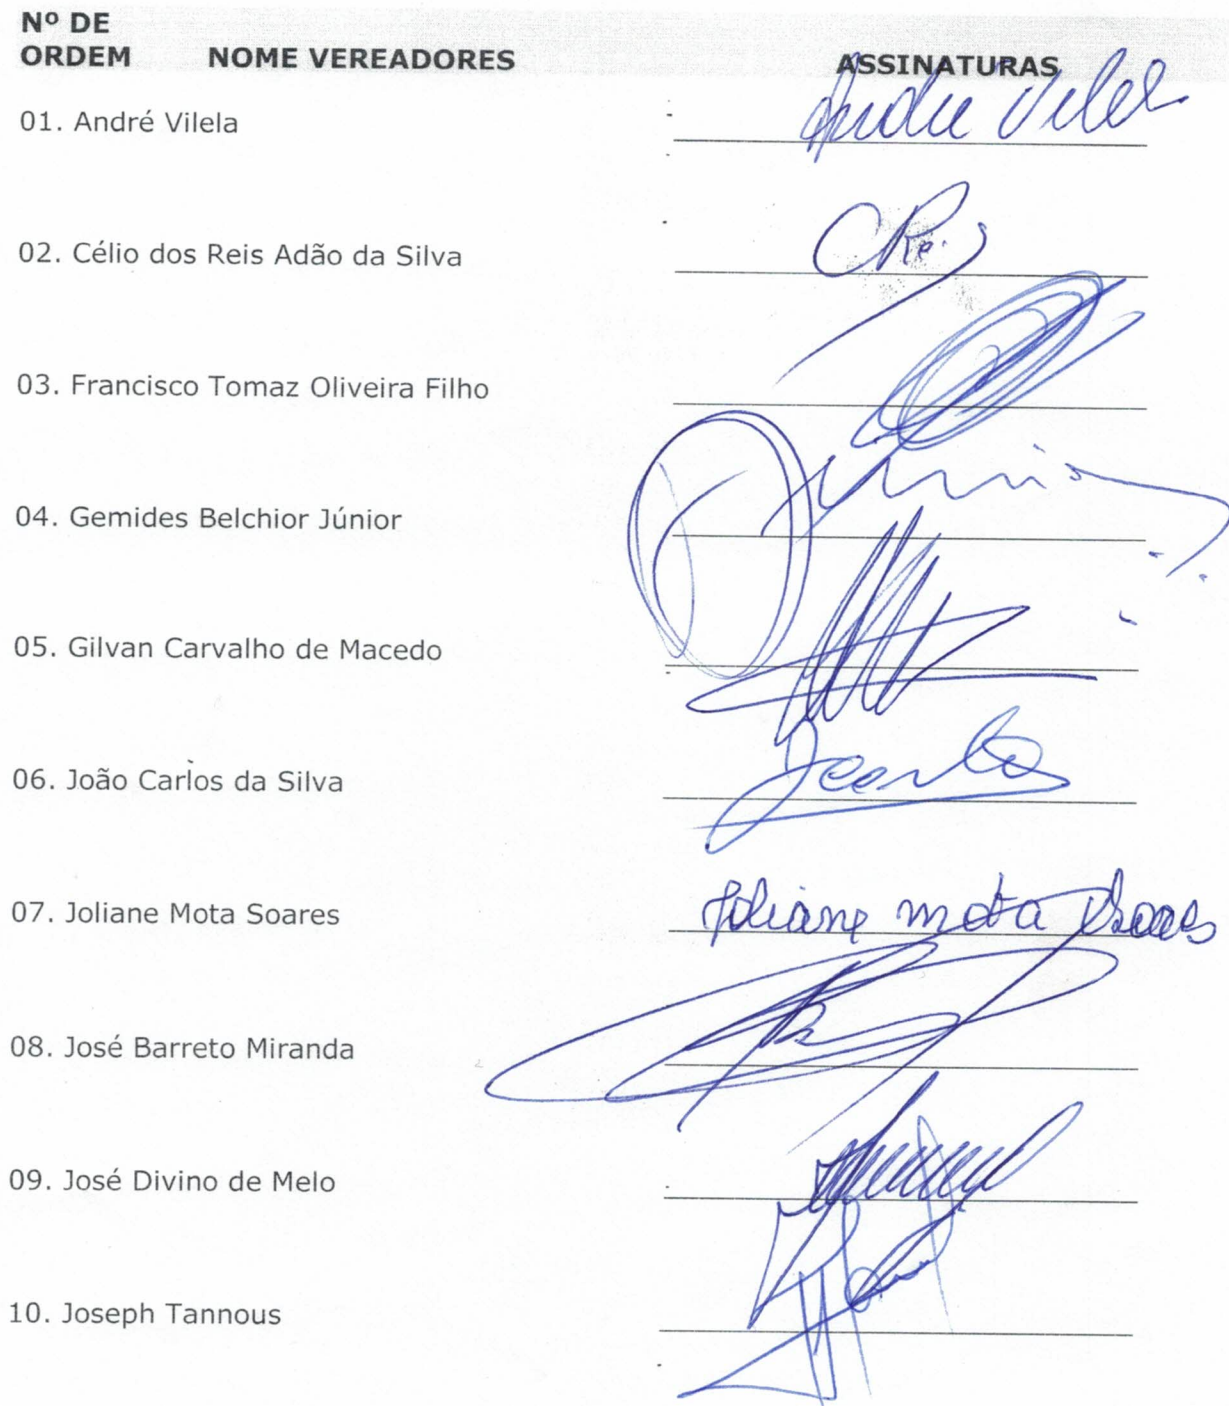 Nº DE
ORDEM NOME VEREADORES ASSINATURAS
01. André Vilela Andre Vilela
02. Célio dos Reis Adão da Silva CRei
03. Francisco Tomaz Oliveira Filho
04. Gemides Belchior Júnior Junior
05. Gilvan Carvalho de Macedo
06. João Carlos da Silva
07. Joliane Mota Soares Joliane Mota Soares
08. José Barreto Miranda
09. José Divino de Melo
10. Joseph Tannous